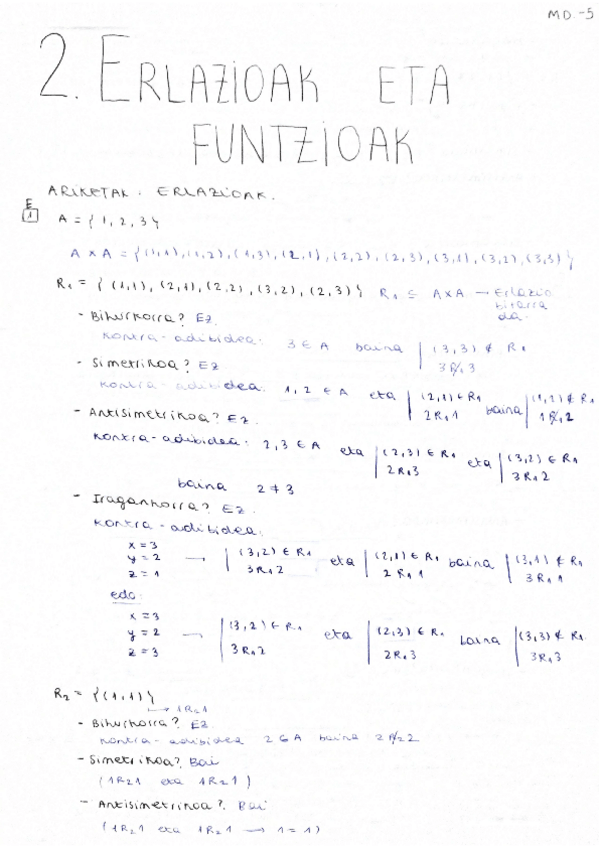 MD-5
2. ERLAZIOAK ETA
FUNTZIOAK
ARIKETAK. ERLAZIOAK.
E
1 A = { 1, 2, 3 }
A x A = { (1,1), (1,2), (1,3), (2,1), (2,2), (2,3), (3,1), (3,2), (3,3) }
R₁ = { (1,1), (2,1), (2,2), (3,2), (2,3) } R₁ ⊆ A×A → Erlazio
bitarra
da.
- Bihurkorra? Ez
kontra-adibidea: 3 ∈ A baina | (3,3) ∉ R₁
3 R̸₁ 3
- Simetrikoa? Ez
kontra-adibidea. 1, 2 ∈ A eta | (2,1) ∈ R₁ baina | (1,2) ∉ R₁
2R₁1 1R̸₁2
- Antisimetrikoa? Ez.
kontra-adibidea: 2,3 ∈ A eta | (2,3) ∈ R₁ eta | (3,2) ∈ R₁
2R₁3 3R₁2
baina 2 ≠ 3
- Iragankorra? Ez.
kontra-adibidea.
x = 3
y = 2 → | (3,2) ∈ R₁ eta | (2,1) ∈ R₁ baina | (3,1) ∉ R₁
z = 1 3R₁2 2R₁1 3R₁1
edo
x = 3
y = 2 → | (3,2) ∈ R₁ eta | (2,3) ∈ R₁ baina | (3,3) ∉ R₁
z = 3 3R₁2 2R₁3 3R₁3
R₂ = { (1,1) }
→ 1R₂1
- Bihurkorra? Ez
kontra-adibidea 2 ∈ A baina 2 R̸₂ 2
- Simetrikoa? Bai
(1R₂1 eta 1R₂1)
- Antisimetrikoa? Bai
(1R₂1 eta 1R₂1 → 1 = 1)